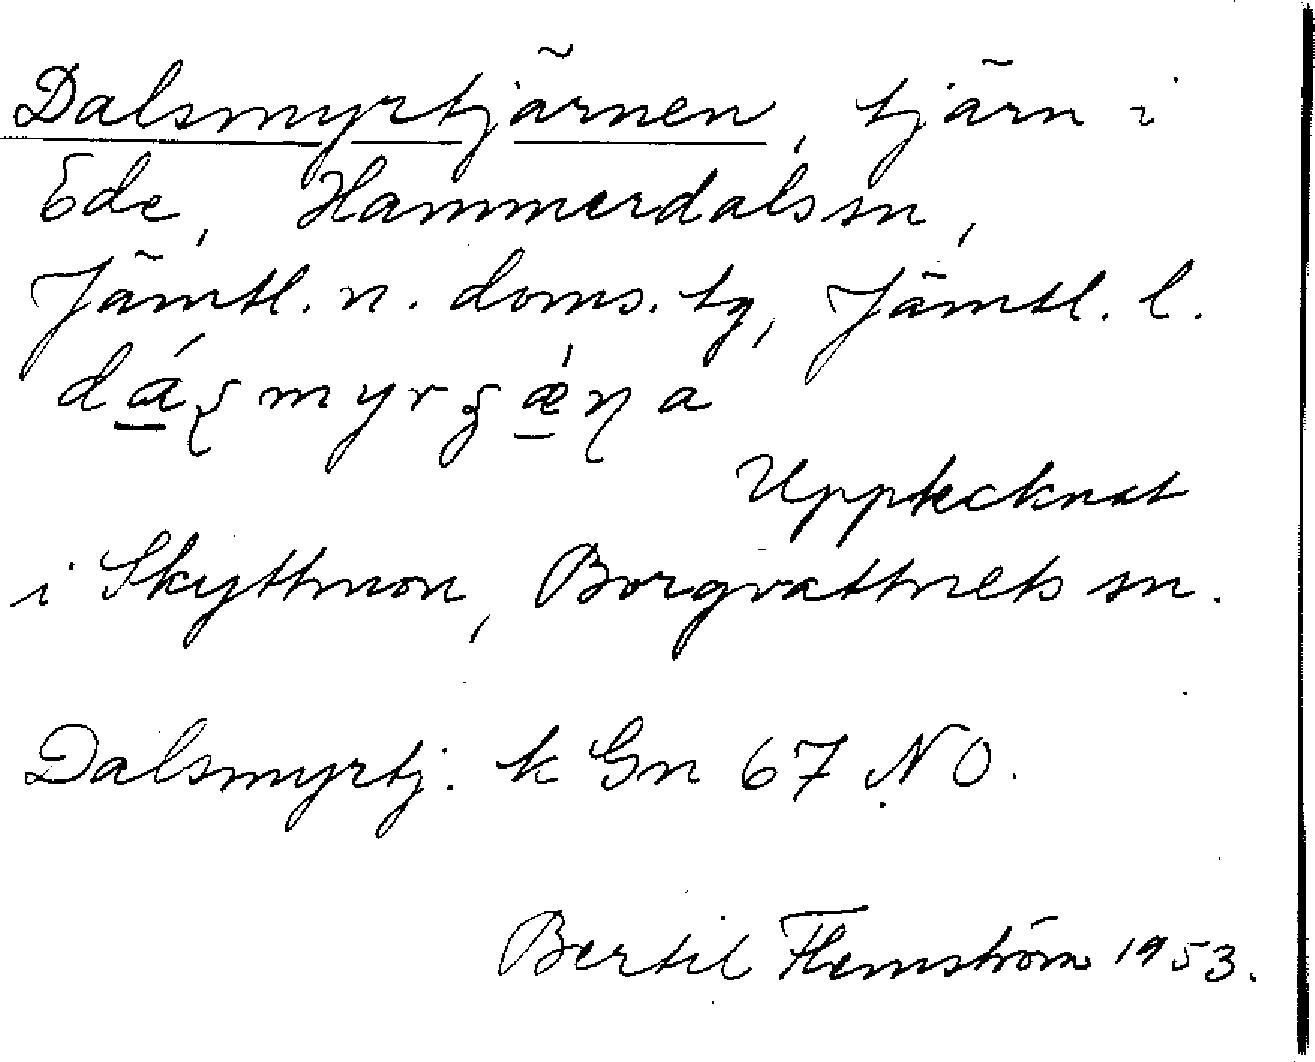 Dalsmyrtjärnen, tjärn i
Ede, Hammerdals sn,
Jämtl. n. doms. tg, Jämtl. l.
Upptecknat
i Skyttmon, Borgvattnets sn.
Dalsmyrtj. k Gn 67 NO.
Bertil Flemström 1953.